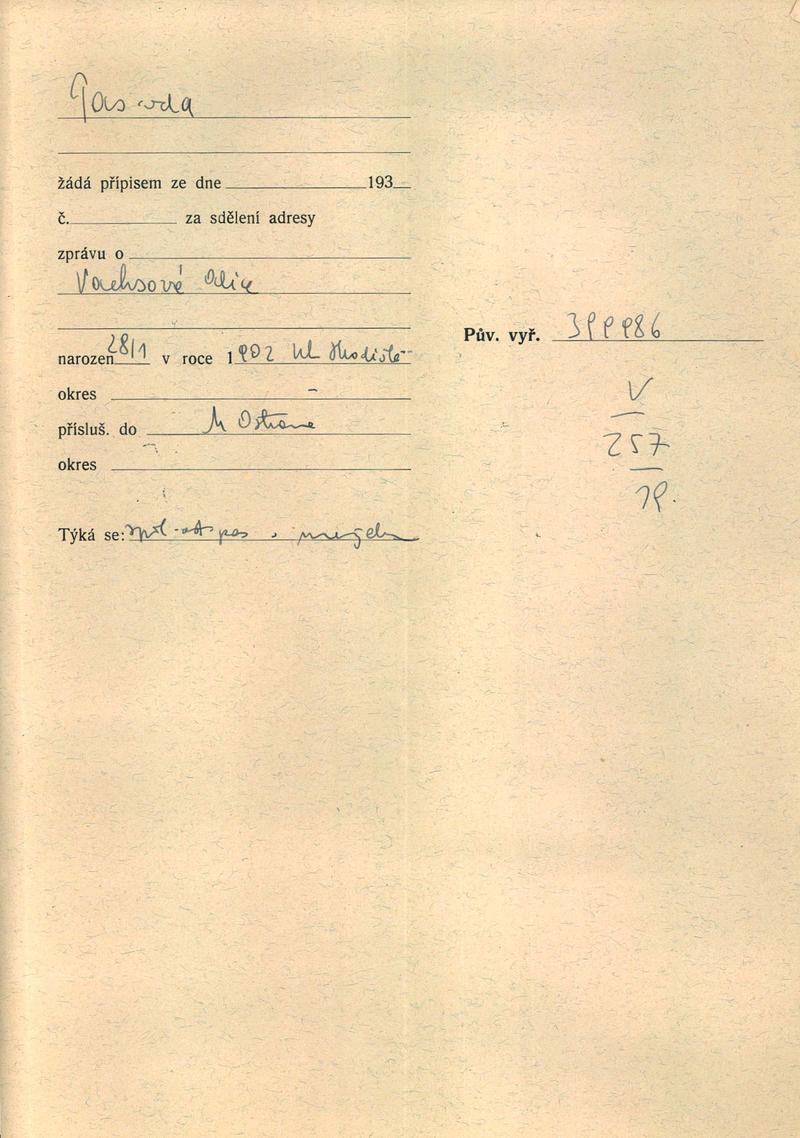 žádá přípisem ze dne 193
č. za sdělení adresy
zprávu o
Vachsové Alice
narozen 28/1 v roce 1902 Uh Hradiště
okres –
přísluš. do M Ostrava
okres
Týká se:
Pův. vyř.
V
257
19.